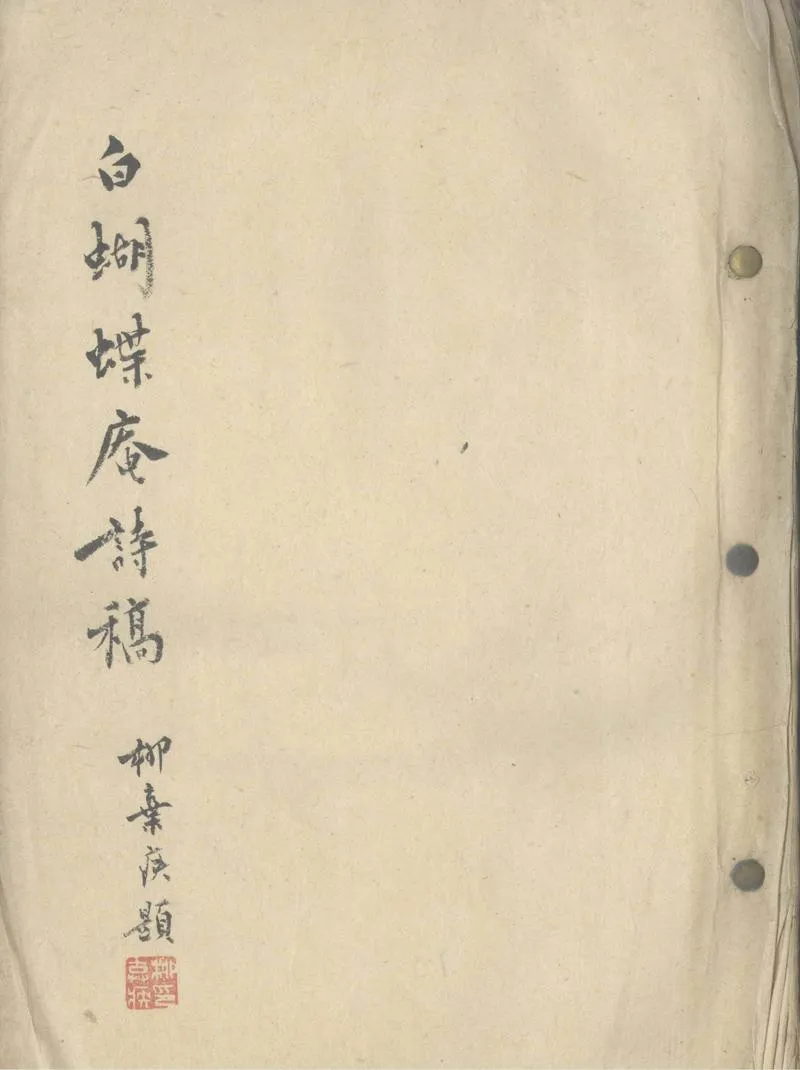 白蝴蝶庵詩稿
柳棄疾題